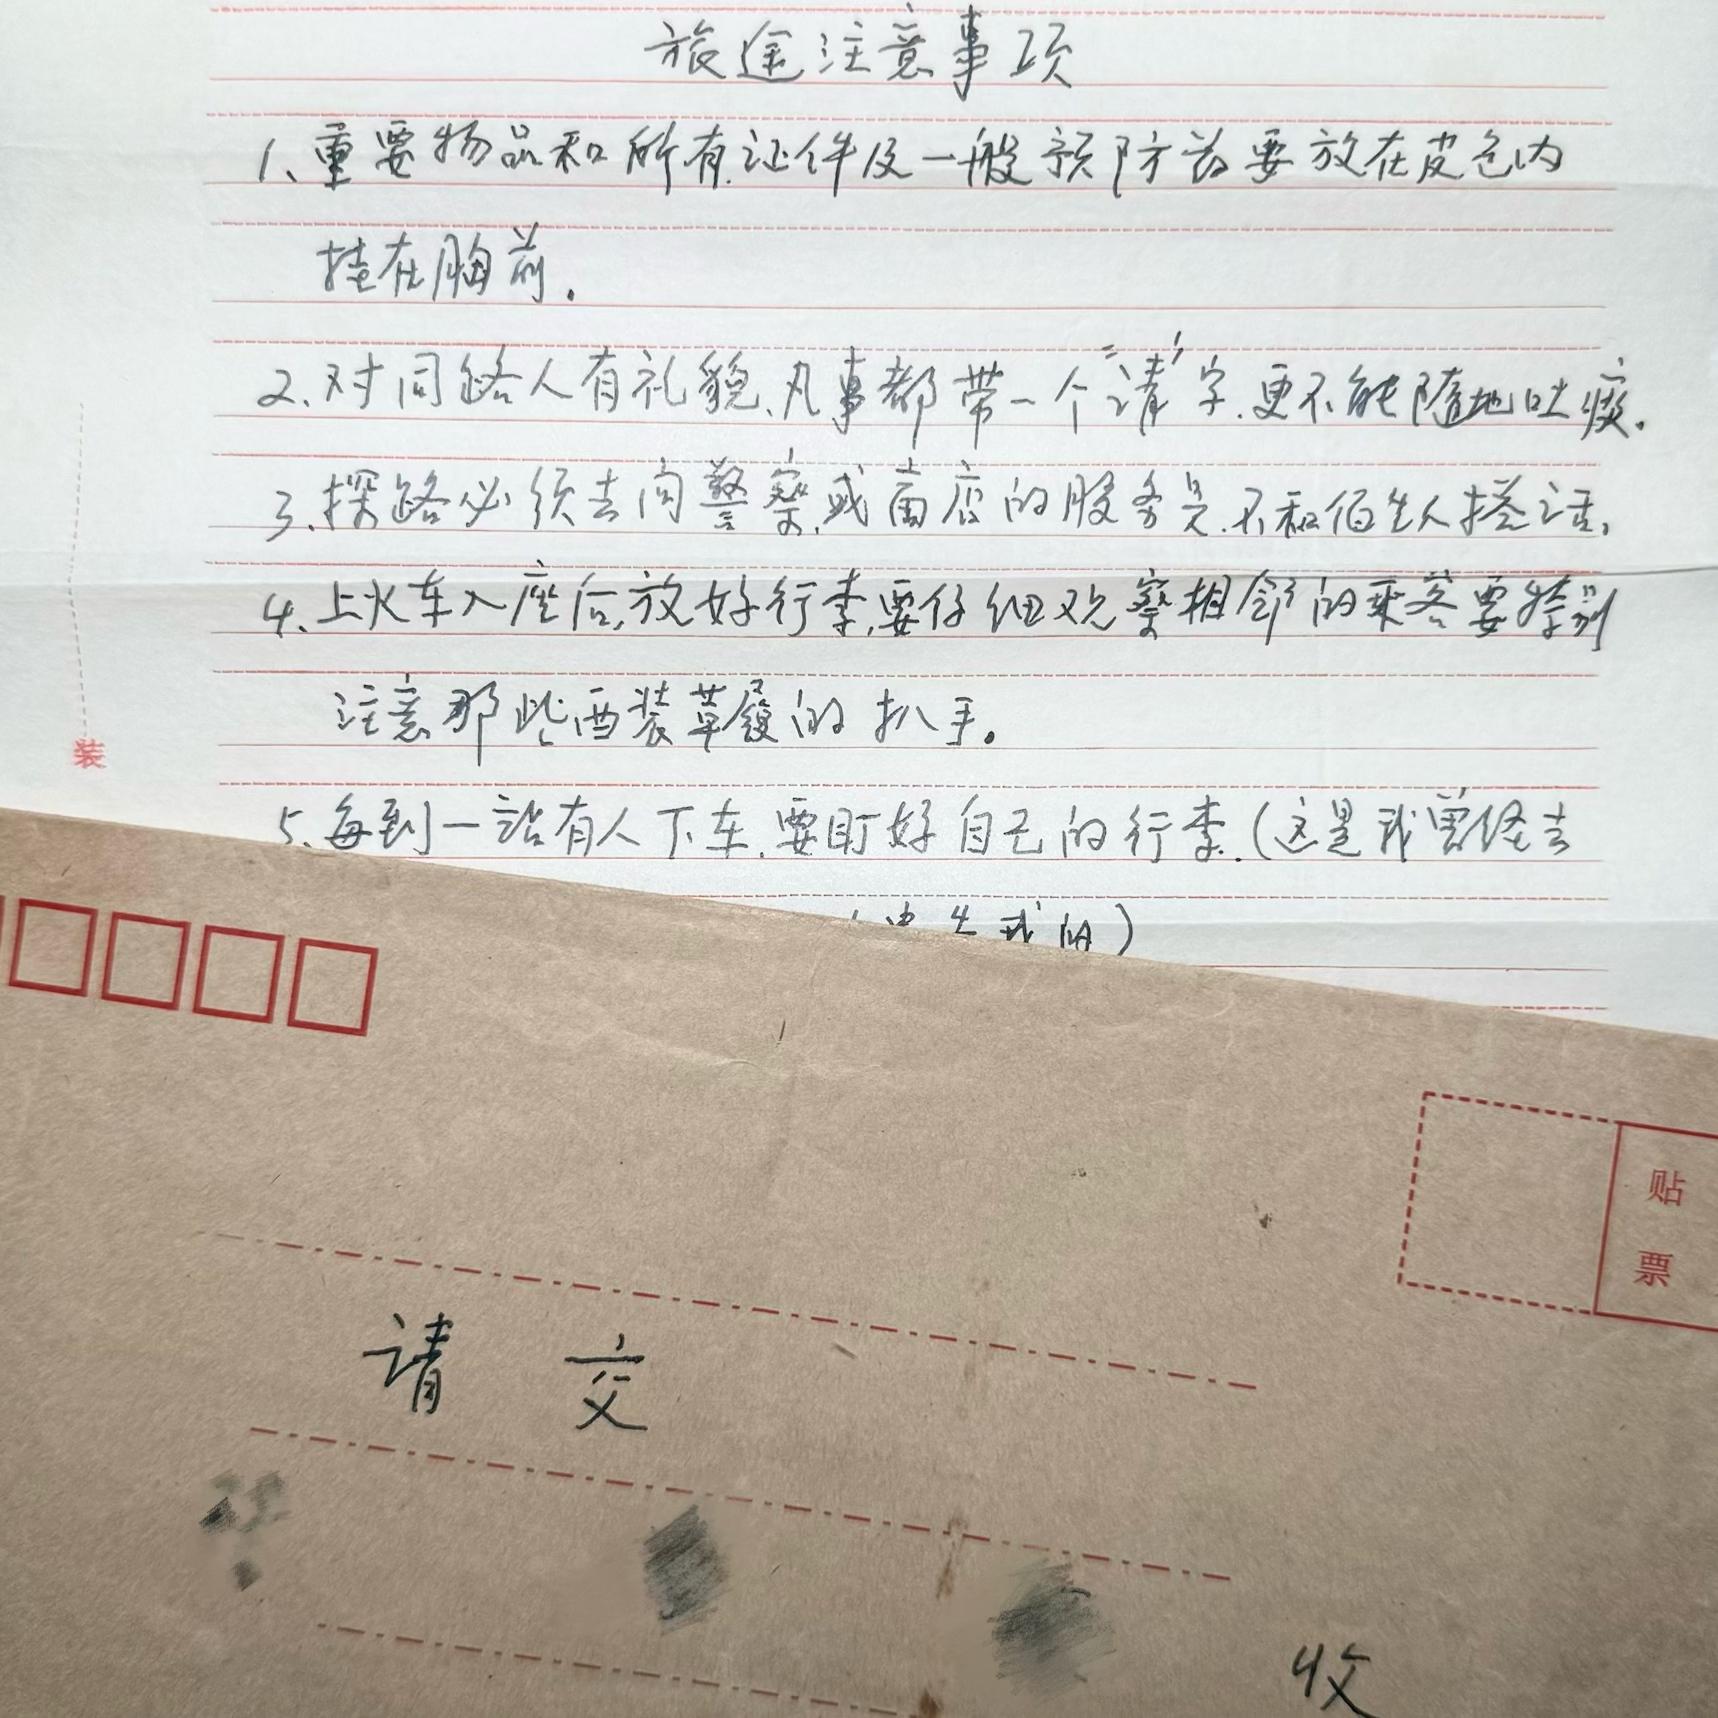 旅途注意事项
1、重要物品和所有证件及一般预防药要放在皮包内
挂在胸前.
2、对同路人有礼貌、凡事都带一个“请”字、更不能随地吐痰.
3、探路必须去问警察,或商店的服务员、不和佰生人搭话.
4、上火车入座后,放好行李,要仔细观察相邻的乘客要特别
注意那些西装草履的扒手。
装
5、每到一站有人下车、要盯好自己的行李.(这是我曾经去
的)
贴
票
请 交
收